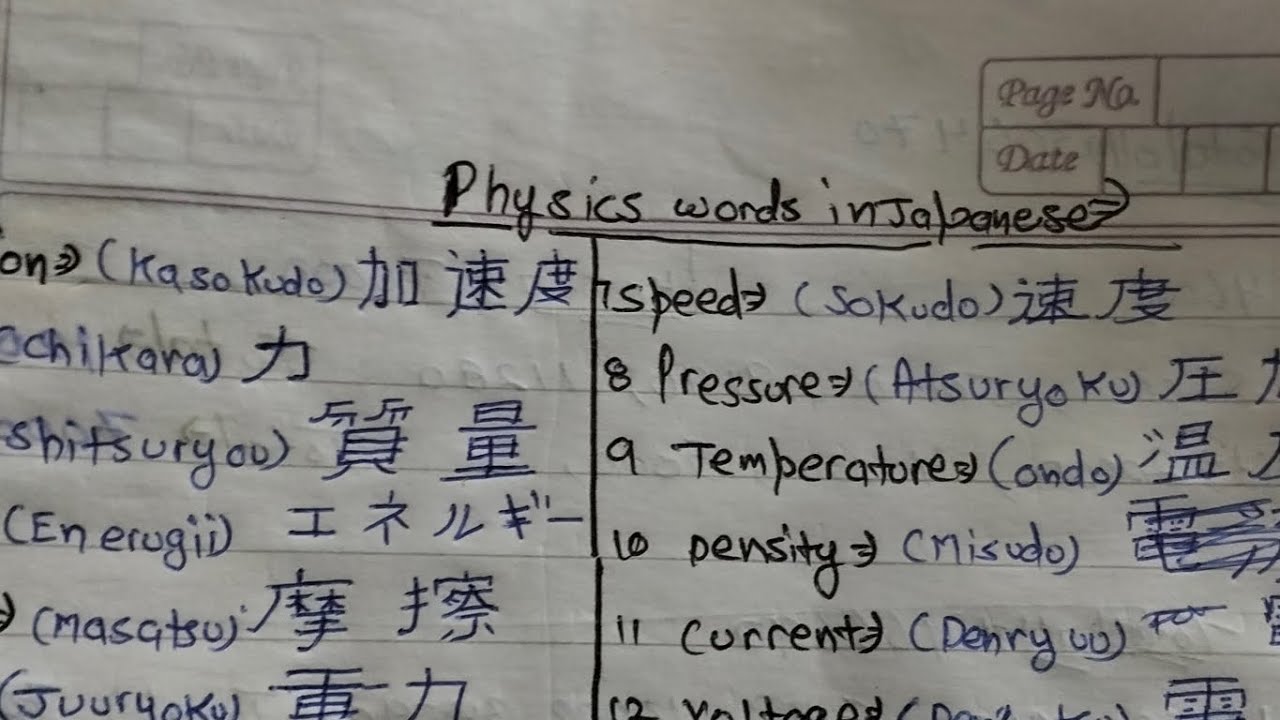 Page No.
Date
Physics words in Japanese⇒
on⇒ (Kasokudo) 加速度
chikara) 力
shitsuryou) 質量
(Enerugii) エネルギー
⇒ (Masatsu) 摩擦
(Juuryoku) 重力
7 Speed⇒ (Sokudo) 速度
8 Pressure⇒ (Atsuryoku) 圧
9 Temperature⇒ (ondo) 温
10 Density⇒ (Misudo)
11 Current⇒ (Denryuu)
12